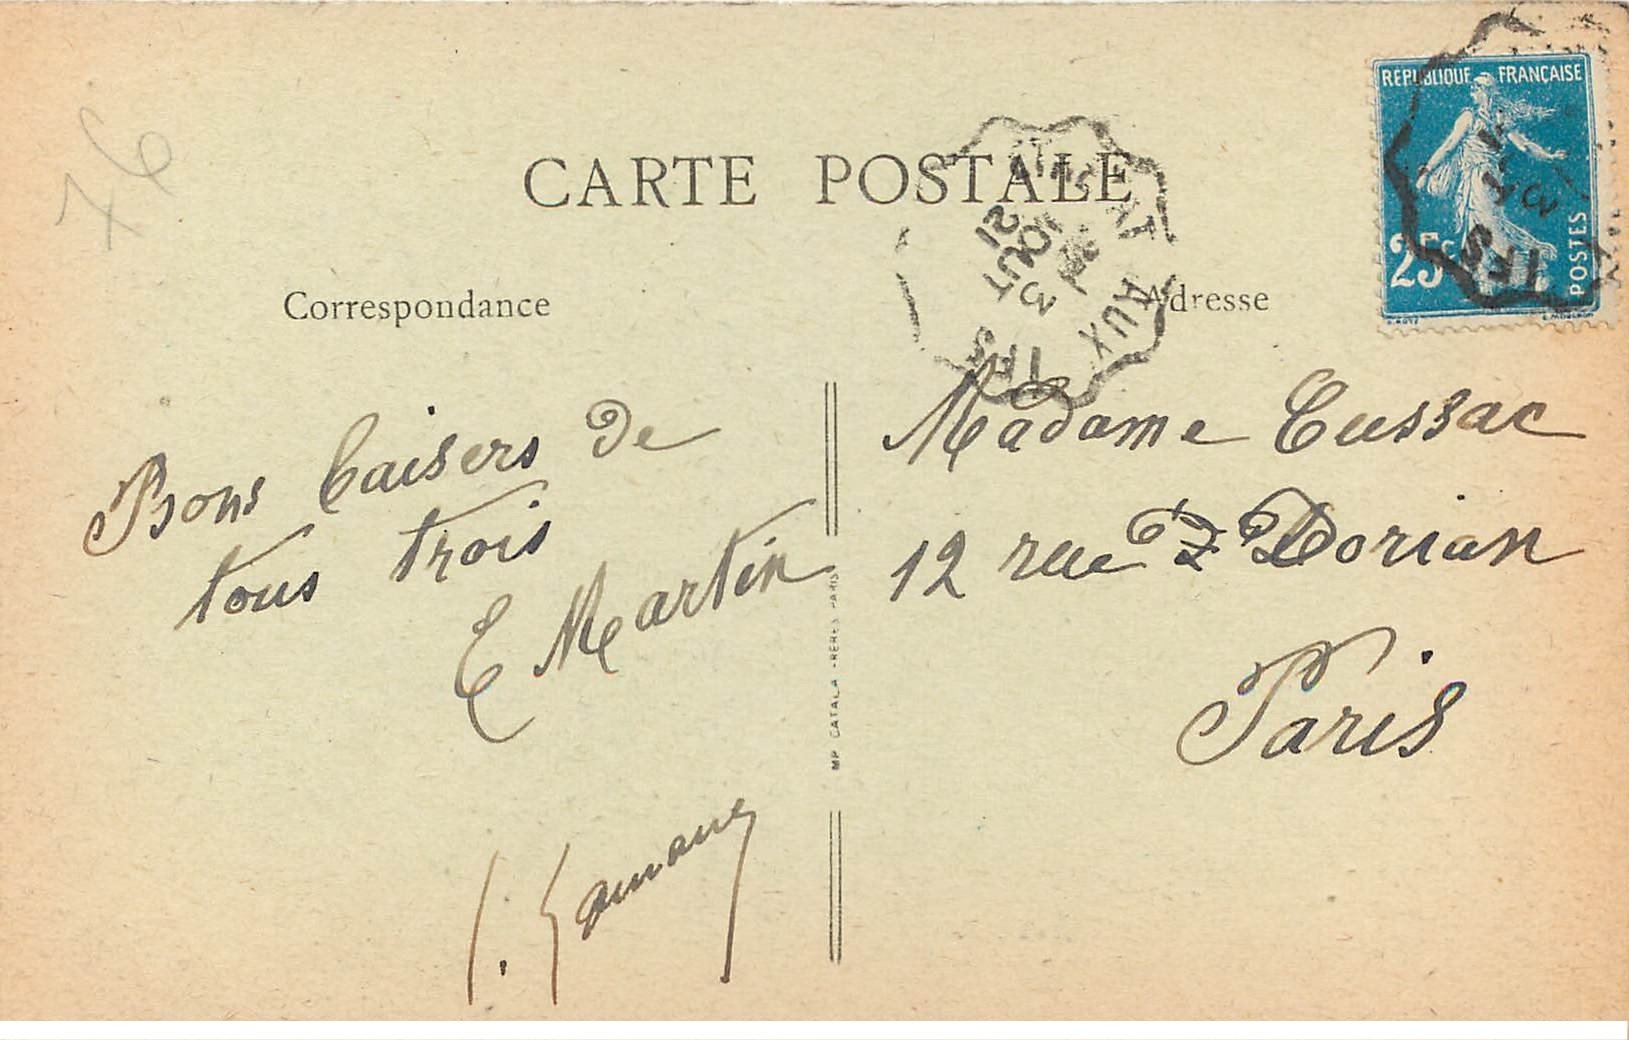 76
CARTE POSTALE
REPUBLIQUE FRANÇAISE
25c
POSTES
Correspondance
Adresse
AUX IFS
3
OUT
21
IFS
Bons baisers de
tous trois
E Martin
Madame Cussac
12 rue Dorian
Paris
IMP CATALA FRERES PARIS